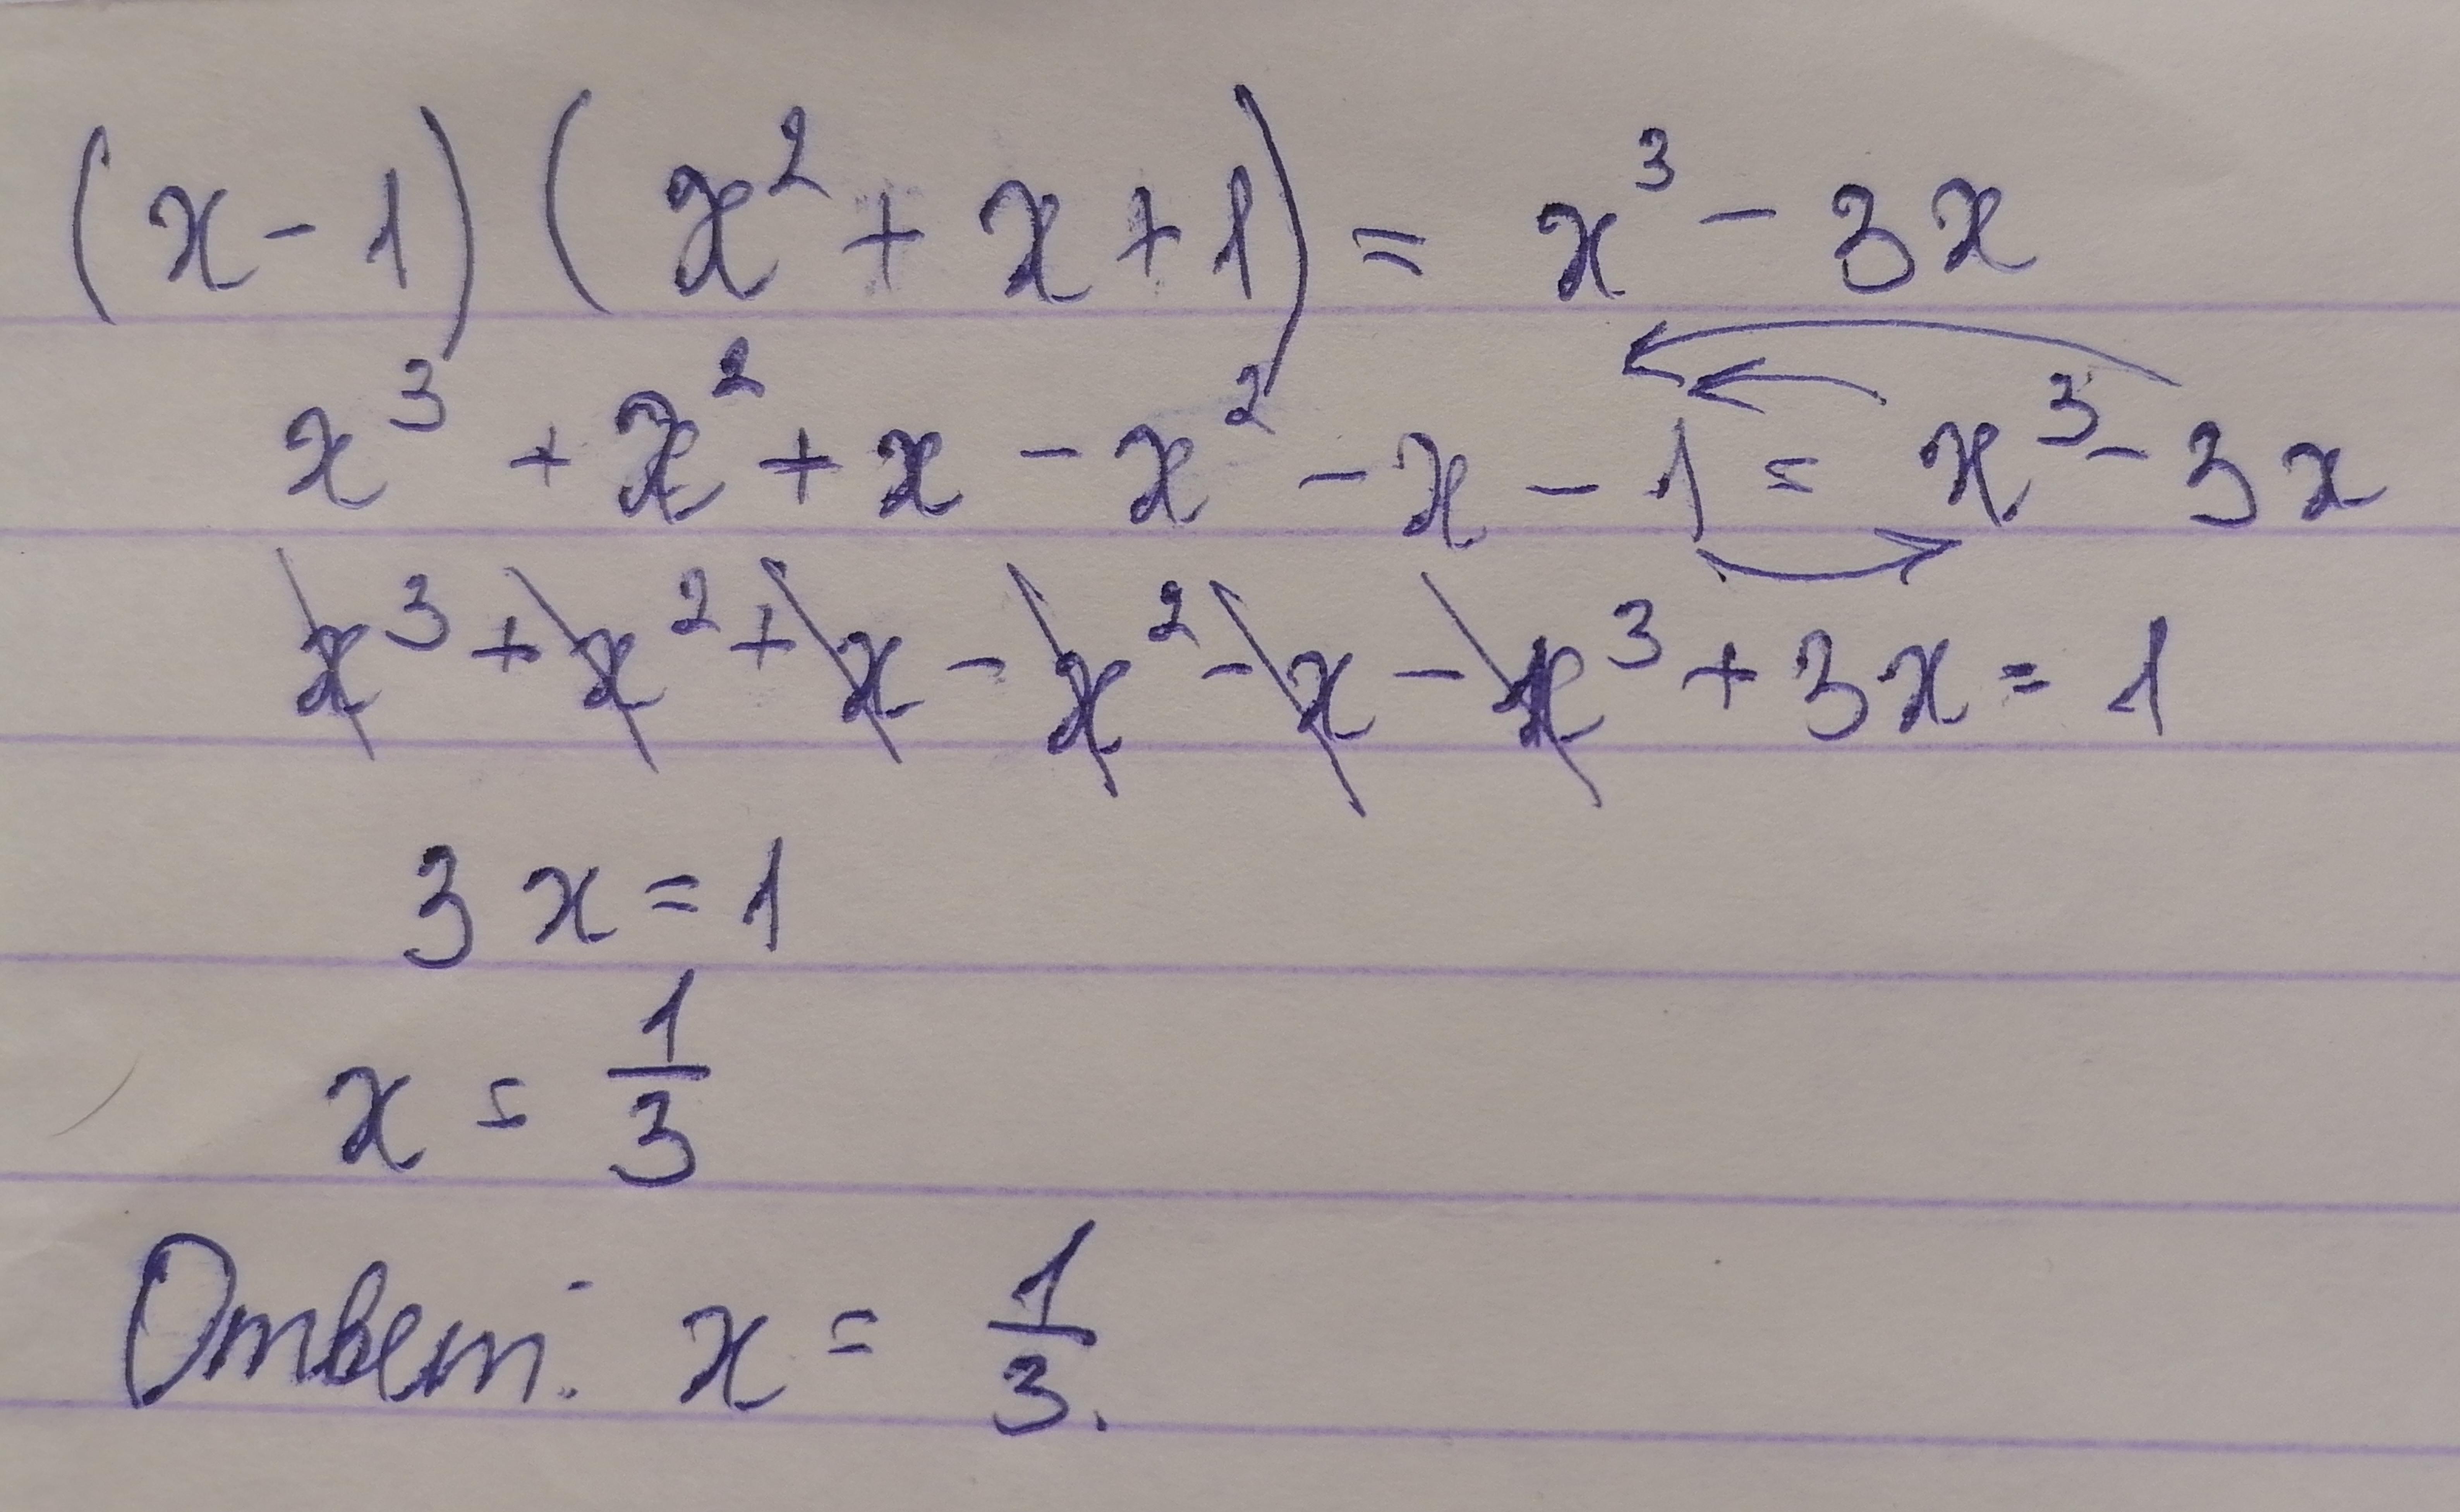 (x-1)(x²+x+1)=x³-3x
x³+x²+x-x²-x-1=x³-3x
x³+x²+x-x²-x-x³+3x=1
3x=1
x=1/3
Ответ: x=1/3.